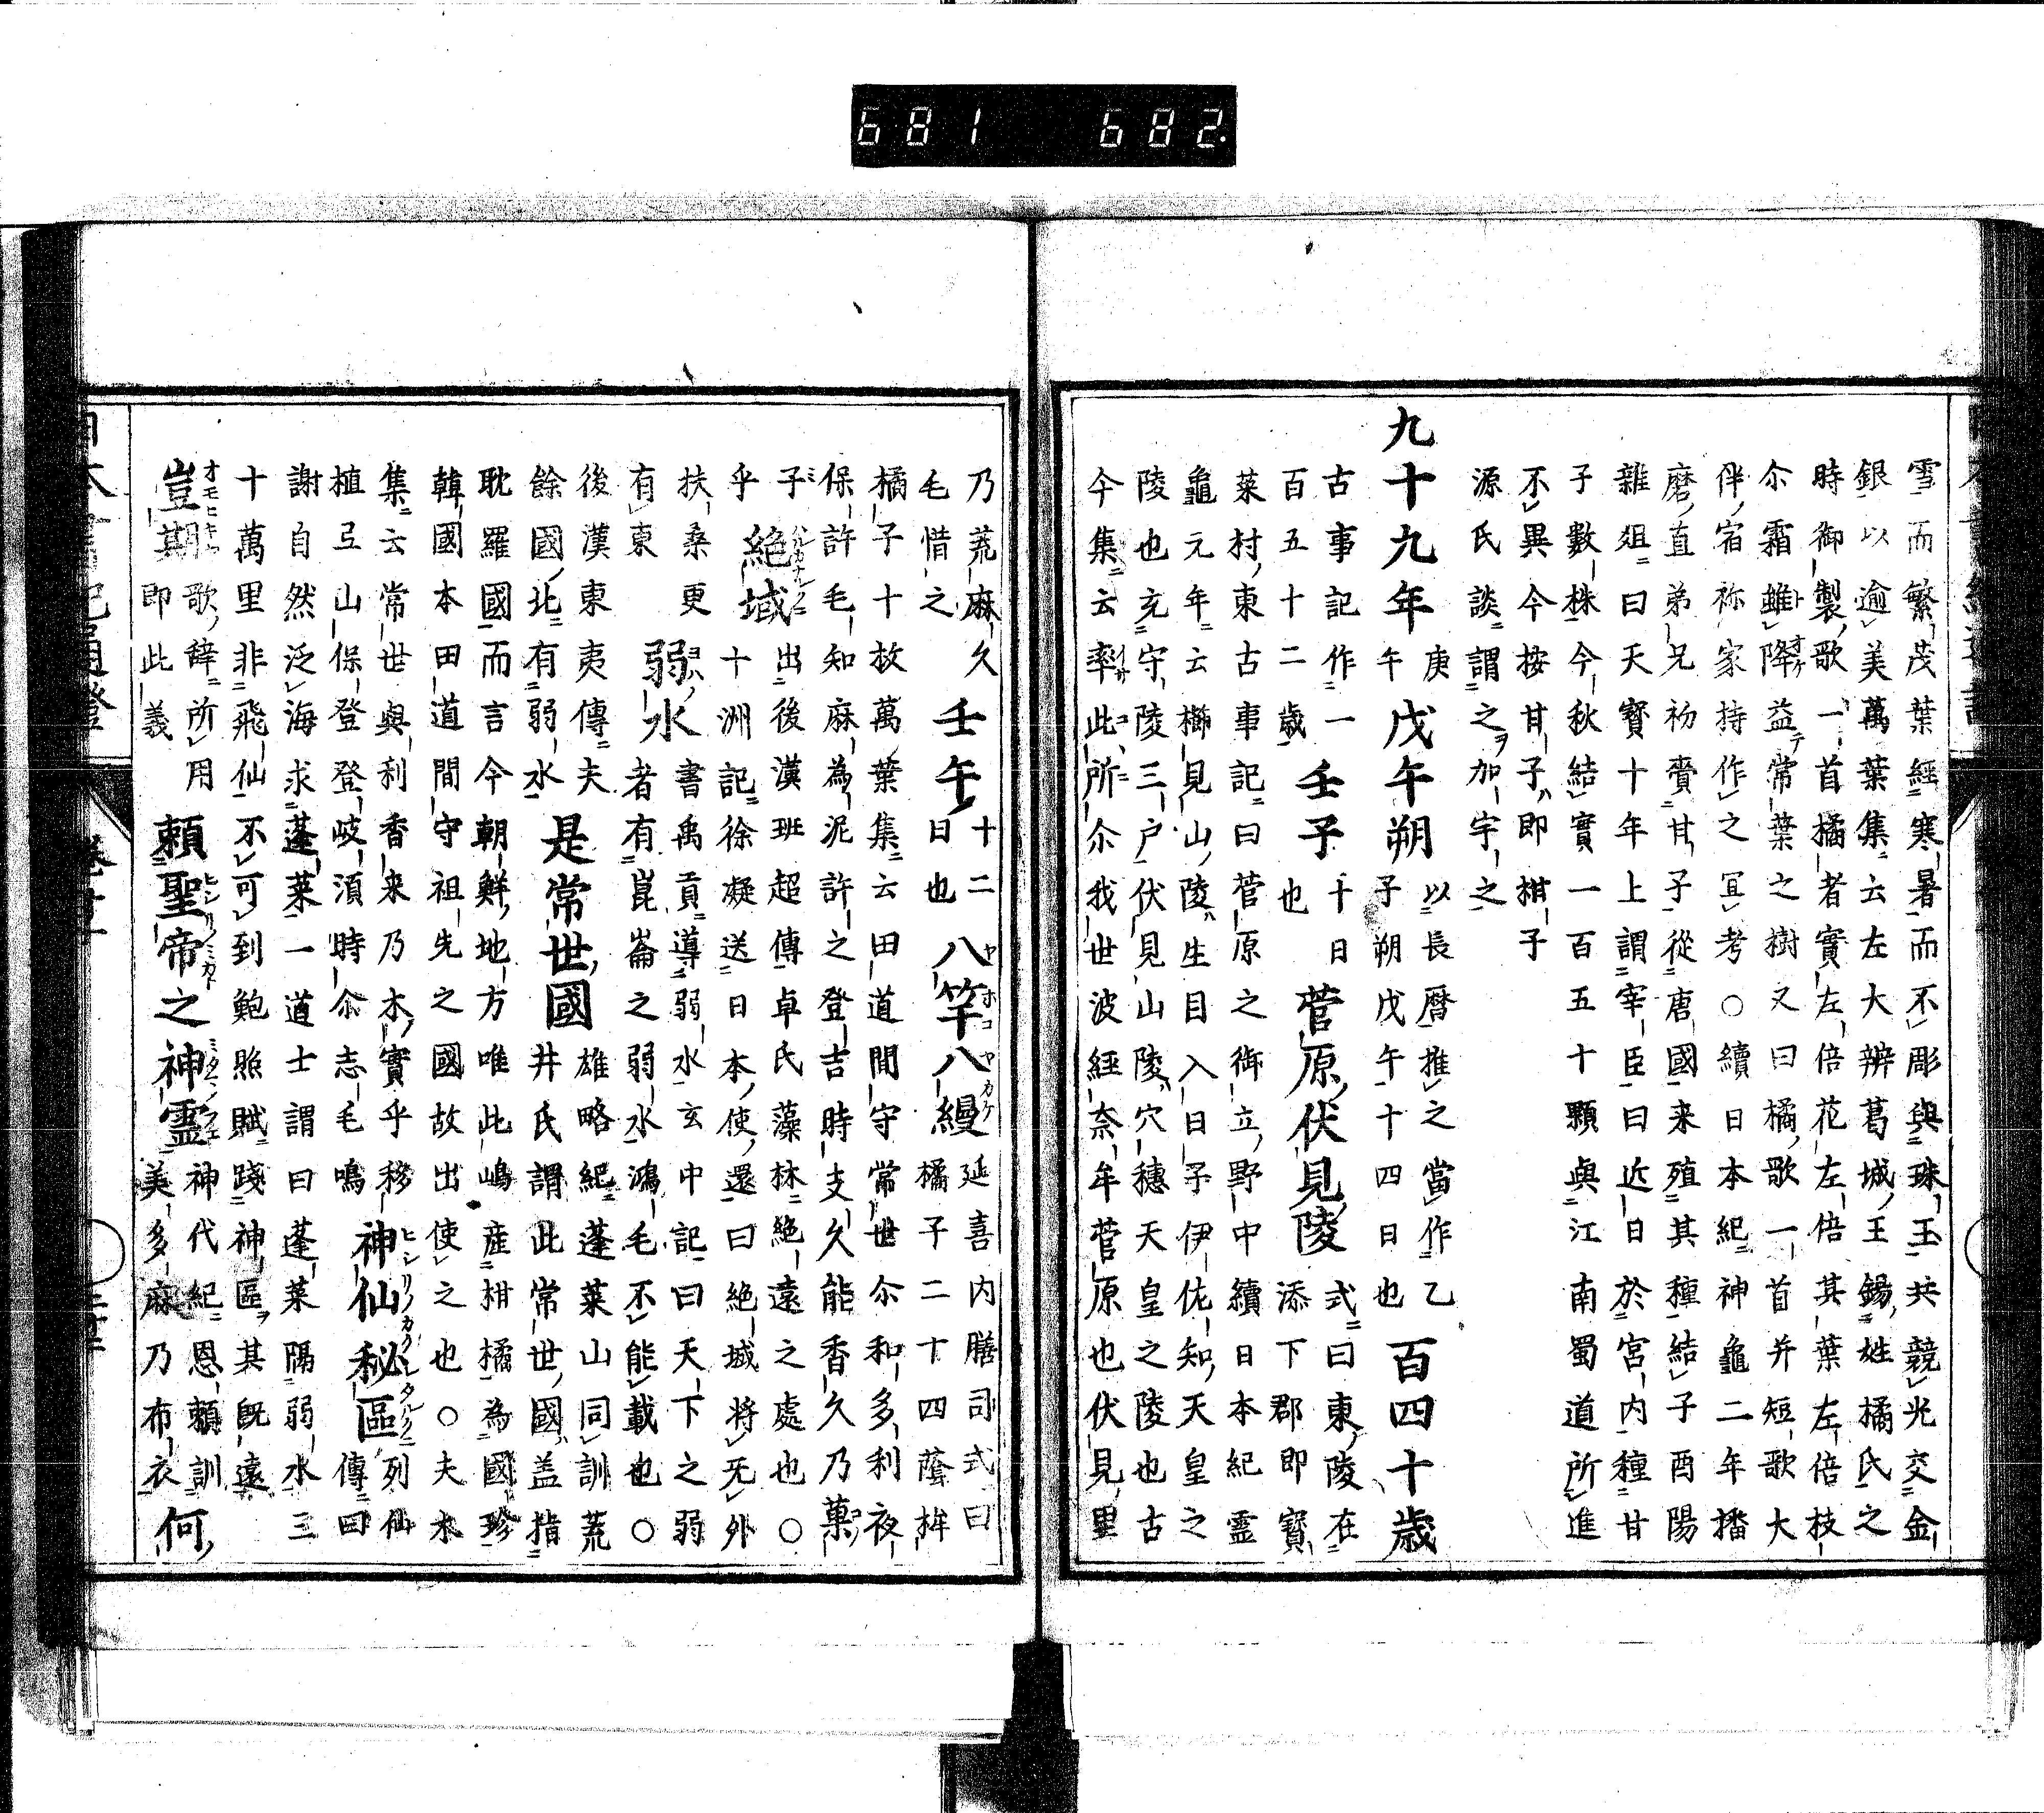 雪而繁茂葉經寒暑而不彫與珠玉共競光交金
銀以逾美萬葉集云左大辨葛城王錫姓橘氏之
時御製歌一首橘者實左倍花左倍其葉左倍枝
尒霜雖降益常葉之樹又曰橘歌一首并短歌大
伴宿祢家持作之冝考○續日本紀神龜二年播
磨直弟兄初賷甘子從唐國来殖其種結子酉陽
雜俎曰天寳十年上謂宰臣曰近日於宮内種甘
子數株今秋結實一百五十顆與江南蜀道所進
不異今按甘子即柑子
源氏談謂之加宇之
九十九年庚午戊午朔以長暦推之當作乙子朔戊午十四日也百四十歳
古事記作一百五十二歳壬子十日也菅原伏見陵式曰東陵在添下郡即寳
萊村東古事記曰菅原之御立野中續日本紀靈
龜元年云櫛見山陵生目入日子伊佐知天皇之
陵也充守陵三戸伏見山陵穴穗天皇之陵也古
今集云率此所尒我世波經奈牟菅原也伏見里
乃荒麻久毛惜之壬午十二日也八竿八縵延喜内膳司式曰橘子二十四蔭桙
橘子十故萬葉集云田道間守常世尒和多利夜
保許毛知麻為泥許之登吉時支久能香久乃菓
子乎絶域出後漢班超傳卓氏藻林絶遠之處也○十洲記徐凝送日本使還曰絶域将无外
扶桑更有東弱水書禹貢導弱水玄中記曰天下之弱者有崑崙之弱水鴻毛不能載也○
後漢東夷傳夫餘國北有弱水是常世國雄略紀蓬萊山同訓荒井氏謂此常世國盖指
耽羅國而言今朝鮮地方唯此嶋産柑橘為國珍
韓國本田道間守祖先之國故出使之也○夫木
集云常世與利香来乃木實乎移植弖山保登登岐湏時尒志毛鳴神仙秘區列仙傳曰
謝自然泛海求蓬萊一道士謂曰蓬萊隔弱水三
十萬里非飛仙不可到鮑照賦踐神區其旣遠
豈期歌辭所用即此義頼聖帝之神霊神代紀恩頼訓美多麻乃布衣何
681 682